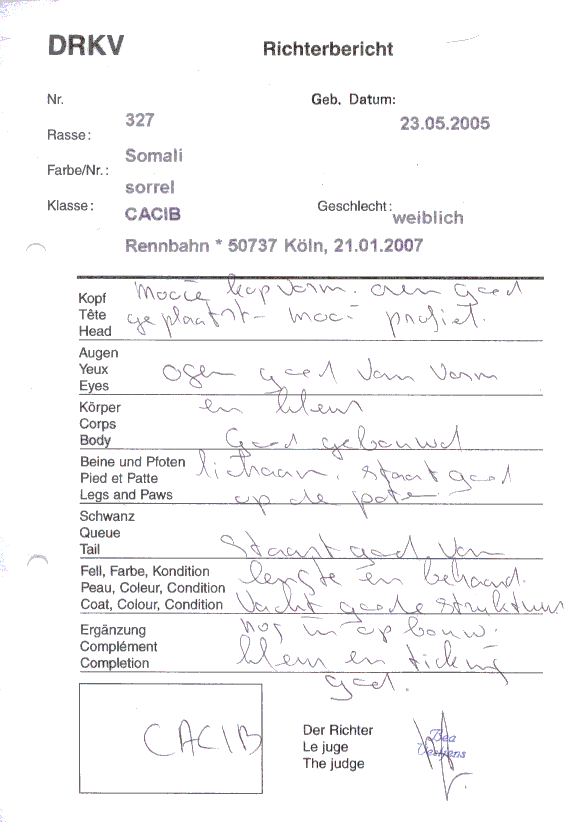 DRKV Richterbericht
Nr. Geb. Datum:
327 23.05.2005
Rasse:
Somali
Farbe/Nr.:
sorrel
Klasse: Geschlecht:
CACIB weiblich
Rennbahn * 50737 Köln, 21.01.2007
Kopf Mooie kopvorm. oren goed
Tête geplaatst - mooi profiel.
Head
Augen
Yeux Ogen goed van vorm
Eyes
Körper en kleur
Corps
Body Goed gebouwd
Beine und Pfoten lichaam. staat goed
Pied et Patte
Legs and Paws op de poten
Schwanz
Queue
Tail Staart goed van
Fell, Farbe, Kondition lengte en behaard.
Peau, Coleur, Condition
Coat, Colour, Condition Vacht goede struktuur
Ergänzung nog in opbouw.
Complément
Completion kleur en ticking
goed.
CACIB
Der Richter
Le juge
The judge
Bea